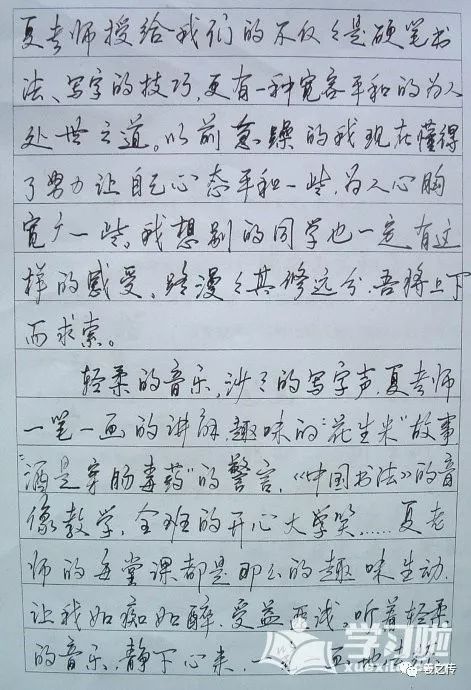 夏老师授给我们的不仅仅是硬笔书
法、写字的技巧,更有一种宽容平和的为人
处世之道。以前急躁的我现在懂得
了努力让自己心态平和一些,为人心胸
宽广一些,我想别的同学也一定有这
样的感受。路漫々其修远兮,吾将上下
而求索。
轻柔的音乐,沙々的写字声,夏老师
一笔一画的讲解,趣味的“花生米”故事
“酒是穿肠毒药”的警言,《中国书法》的音
像教学,全班的开心大学笑……夏老
师的每堂课都是那么的趣味生动.
让我如痴如醉.受益匪浅,听着轻柔
的音乐,静下心来,一
学习啦
xuexila.com
姜之传